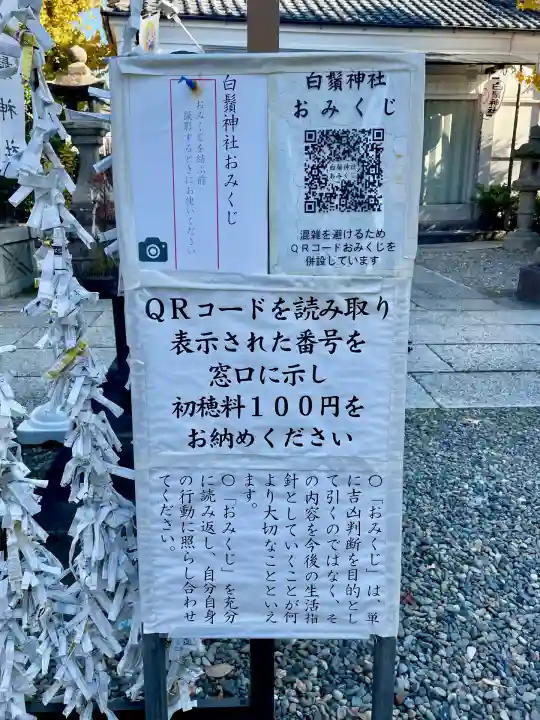 白鬚神社おみくじ
おみくじを結ぶ前
撮影するときにお使いください
白鬚神社
おみくじ
白鬚神社
おみくじ
混雑を避けるため
QRコードおみくじを
併設しています
QRコードを読み取り
表示された番号を
窓口に示し
初穂料100円を
お納めください
〇「おみくじ」は、単
に吉凶判断を目的とし
て引くのではなく、そ
の内容を今後の生活指
針としていくことが何
より大切なことといえ
ます。
〇「おみくじ」を充分
に読み返し、自分自身
の行動に照らし合わせ
てください。
神社
白鬚神社